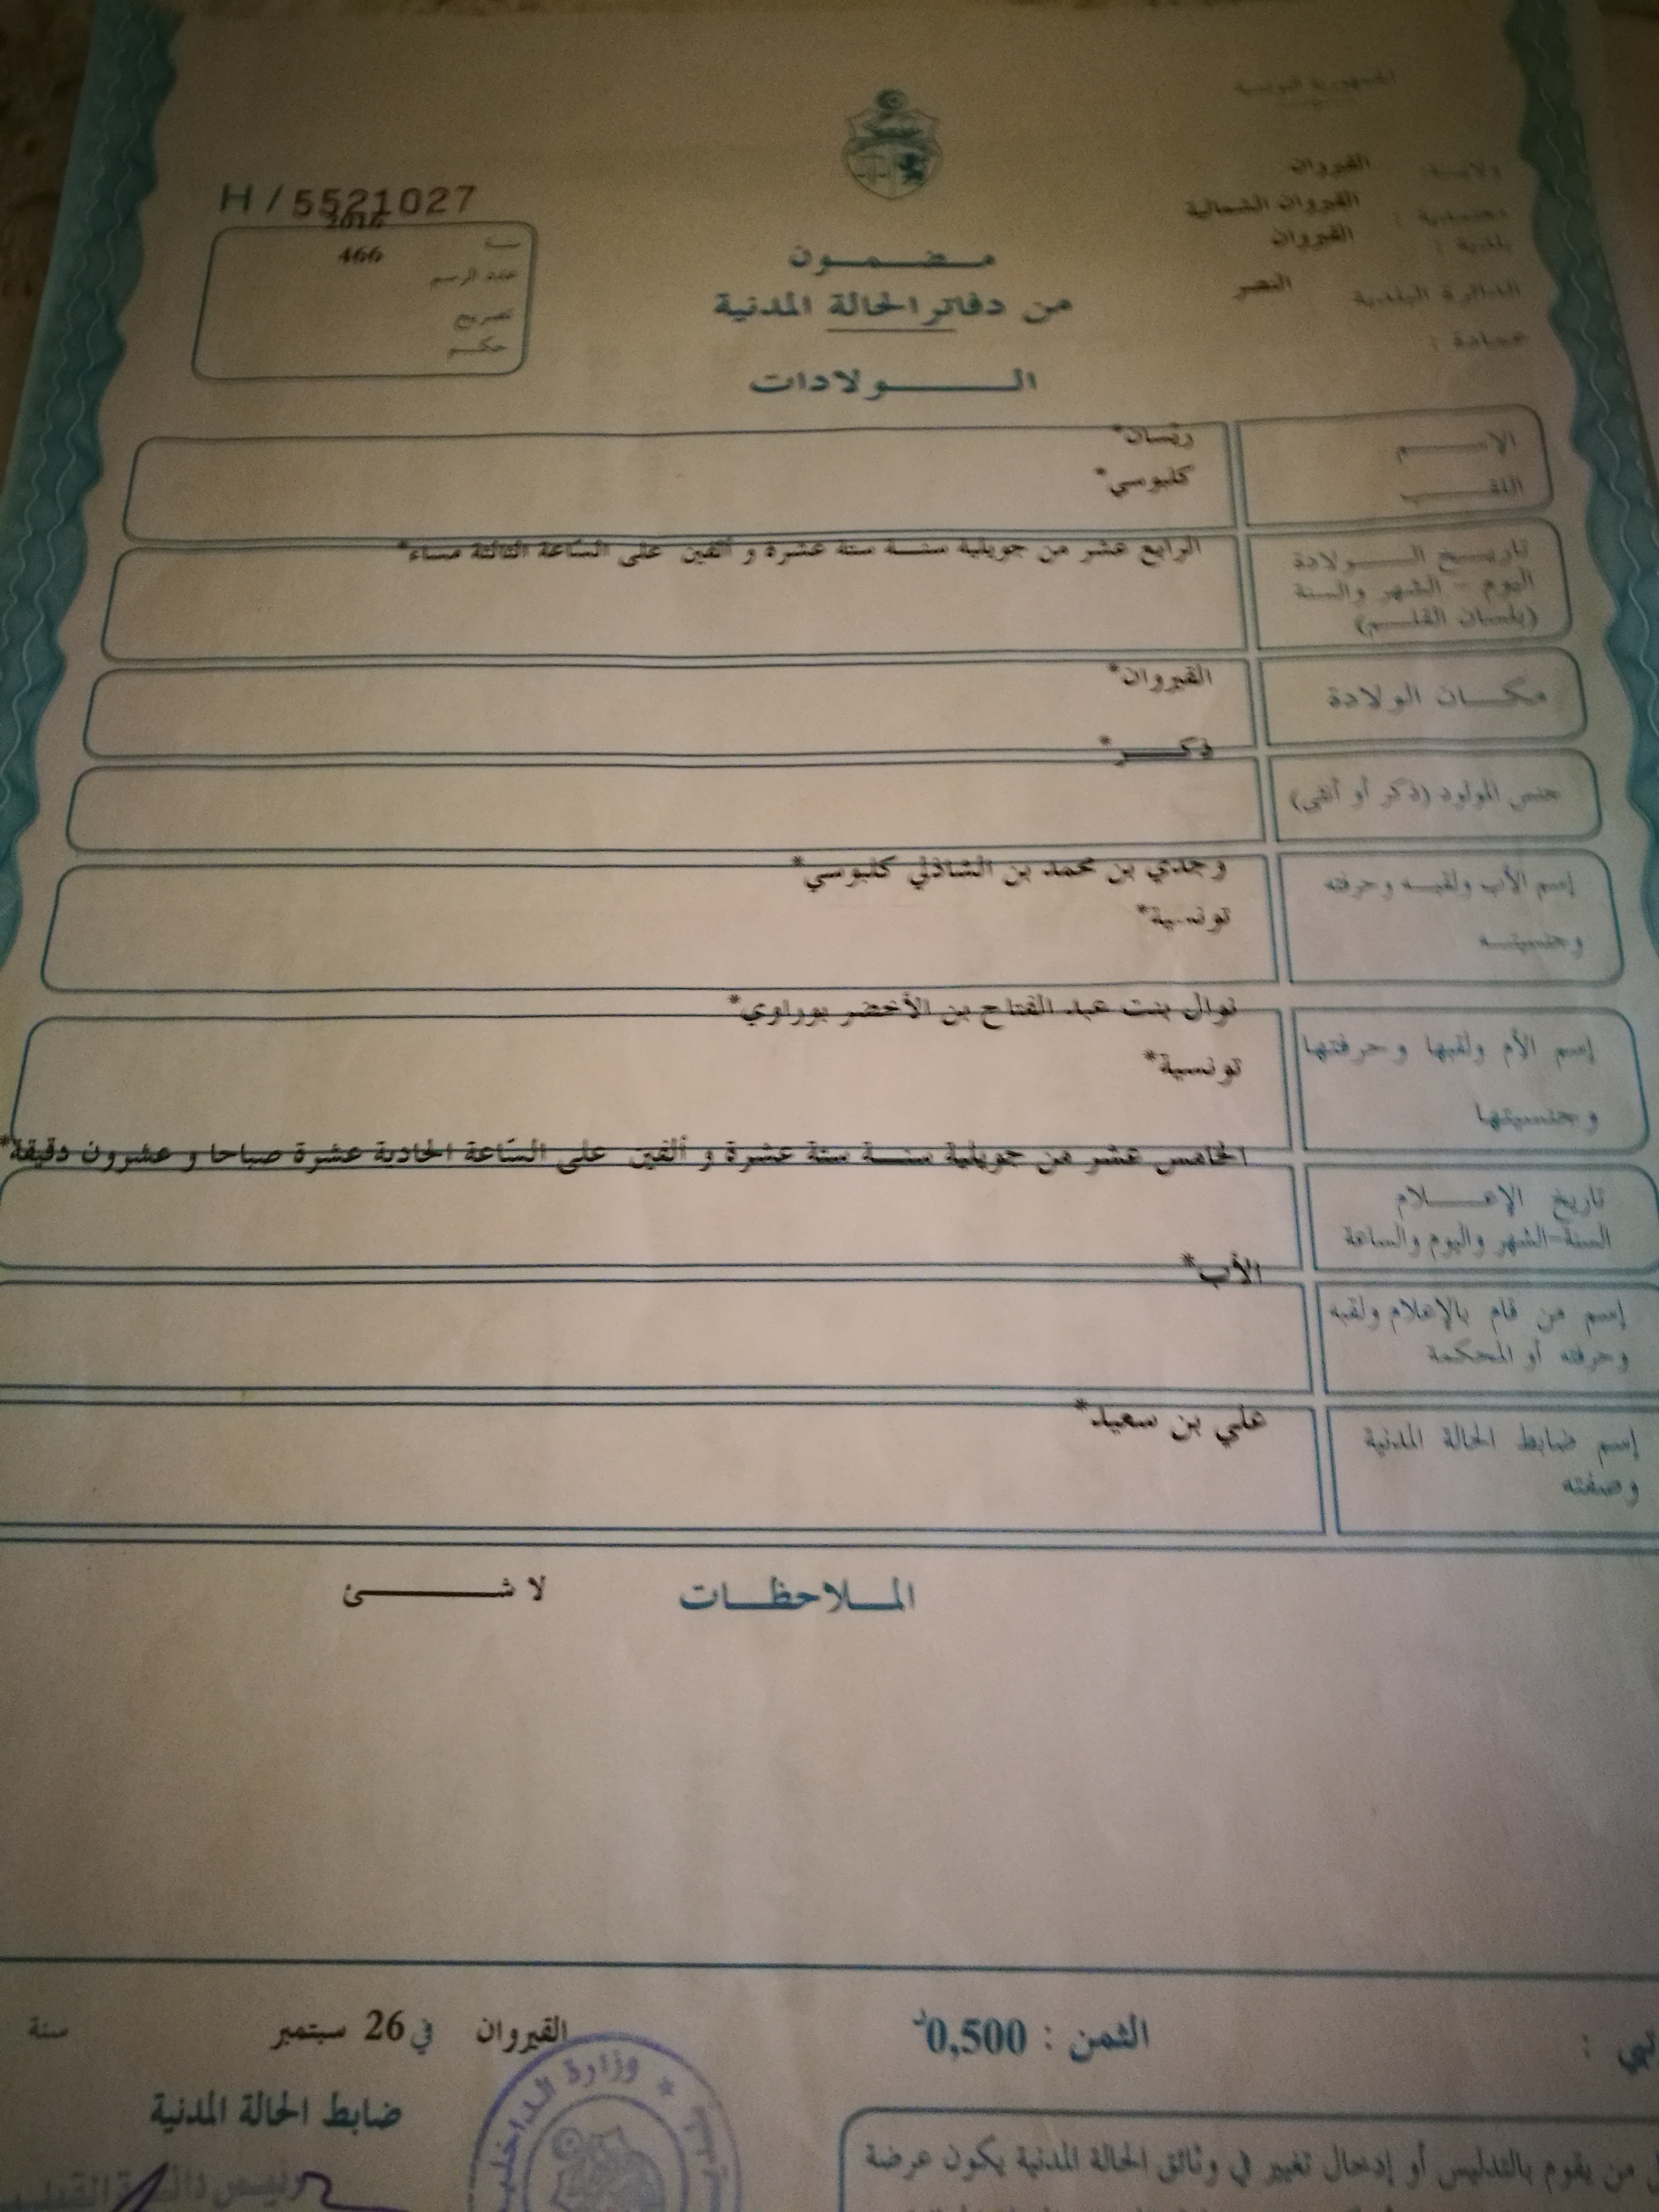 الجمهورية التونسية
ولاية: القيروان
معتمدية: القيروان الشمالية
بلدية: القيروان
الدائرة البلدية النصر
عمادة:
H / 5521027
سنة 2016
عدد الرسم 466
تصريح
حكم
مضمون
من دفاتر الحالة المدنية
الولادات
الإسم
اللقب كلبوسي*
تاريخ الولادة الرابع عشر من جويلية سنة ستة عشرة و ألفين على الساعة الثالثة مساء*
اليوم - الشهر والسنة
(بلسان القلم)
مكان الولادة القيروان*
جنس المولود (ذكر أو أنثى) ذكر*
إسم الأب ولقبه وحرفته وجدي بن محمد بن الشاذلي كلبوسي*
وجنسيته تونسية*
إسم الأم ولقبها وحرفتها نوال بنت عبد الفتاح بن الأخضر بوراوي*
وجنسيتها تونسية*
تاريخ الإعلام الخامس عشر من جويلية سنة ستة عشرة و ألفين على الساعة الحادية عشرة صباحا و عشرون دقيقة*
السنة-الشهر واليوم والساعة
إسم من قام بالإعلام ولقبه الأب*
وحرفته أو المحكمة
إسم ضابط الحالة المدنية علي بن سعيد*
وصفته
الملاحظات لا شئ
الثمن : 0,500د
القيروان في 26 سبتمبر سنة
ضابط الحالة المدنية
وزارة الداخلية
من يقوم بالتدليس أو إدخال تغيير في وثائق الحالة المدنية يكون عرضة